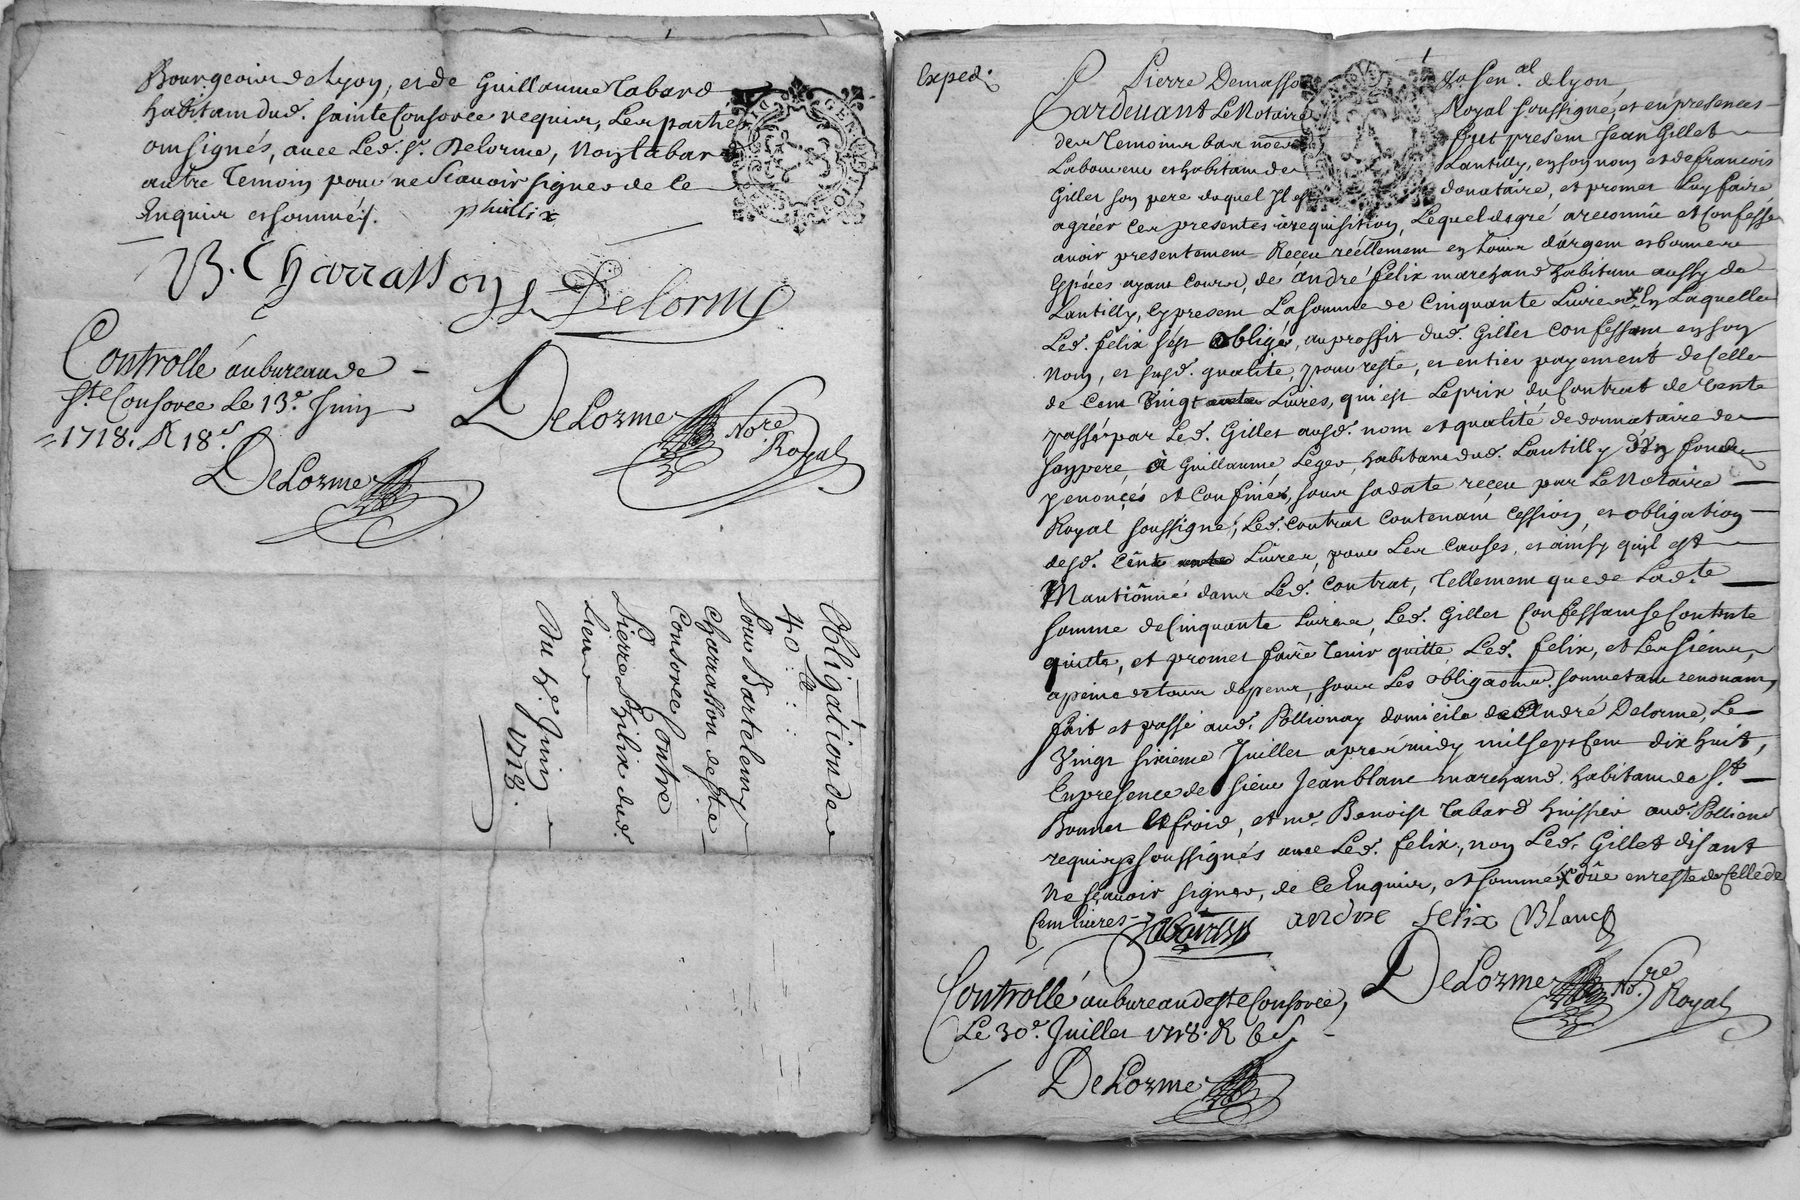 Bourgeois de Lyon, et de Guillaume Tabard
habitam dud. sainte Consorce requis, Les parties
ont signés, avec Led. Sr. Delorme, Non Tabard
autre Temoin pour ne Scavoir signer de Ce
Enquis et sommés.
phillix
B. Charrasson
Delorme
Controllé au bureau de
Ste Consorce Le 13e. Juin
1718. R 18s
DeLorme
DeLorme Nore Royal
Obligation de
40 :: lt ::
Pour Bartelemy
Charrasson de Ste
Consorce Contre
Pierre Philix dud.
Lieu
Du 4e. Juin
1718.
Exped.
Pierre Demasso
Sen.al de Lyon,
Pardevant Le Notaire Royal soussigné, et en presences
des Temoins bas només fut present Jean Gillet
Laboureur et habitam de Lantilly, en son nom et de francois
Gillet son pere duquel Il est donataire, et promet Luy faire
agréer Ces presentes à requisition, Lequel de gré a reconnû et Confessé
avoir presentement Receu réellement en Louis d'argent et bonnes
Espéces ayant Cours, de andré felix marchand habitam aussy de
Lantilly, Cy present La somme de Cinquante Livres En Laquelle
Led. felix s'est obligé, au proffit dud. Gillet Confessant en son
Nom, et susd. qualité, pour reste, et entier payement de Celle
de Cent Vingt Livres, qui est Le prix du Contrat de Vente
passé par Led. Gillet ausd. nom et qualité de donnataire de
son pere, à Guillaume Leger, habitam dud. Lantilly D'un fonds
y enoncés et Confinés, sous sa date reçeu par Le Notaire
Royal soussigné; Led. Contrat Contenant Cession, et obligation
desd. Cent Livres, pour Les Causes, et ainsy qu'il est
Mantionné dans Led. Contrat, Tellement que de Lad.te
somme de Cinquante Livres, Led. Gillet Confessant se Contente
quitte, et promet faire Tenir quitte Led. felix, et Les siens,
a peine de tous dépens, sous Les obligaons. soumetant renonam,
fait et passé aud. Pollionay domicile de André Delorme, Le
Vingt sixieme Juillet apres midy mil sept Cent dix huit,
En presence de sieur Jean blanc marchand habitam de St
Bonnet Le froid, et me. Benoist Tabard huissier aud. Pollionay
requis soussignés avec Led. felix, non Led. Gillet disant
Ne sçavoir signer, de Ce Enquis, et sommé dûe en reste de Celle de
Cent Livres
Tabard andre felix Blanc
Controllé au bureau de Ste Consorce,
Le 30e. Juillet 1718. R 6 s.
DeLorme Nore. Royal
DeLorme